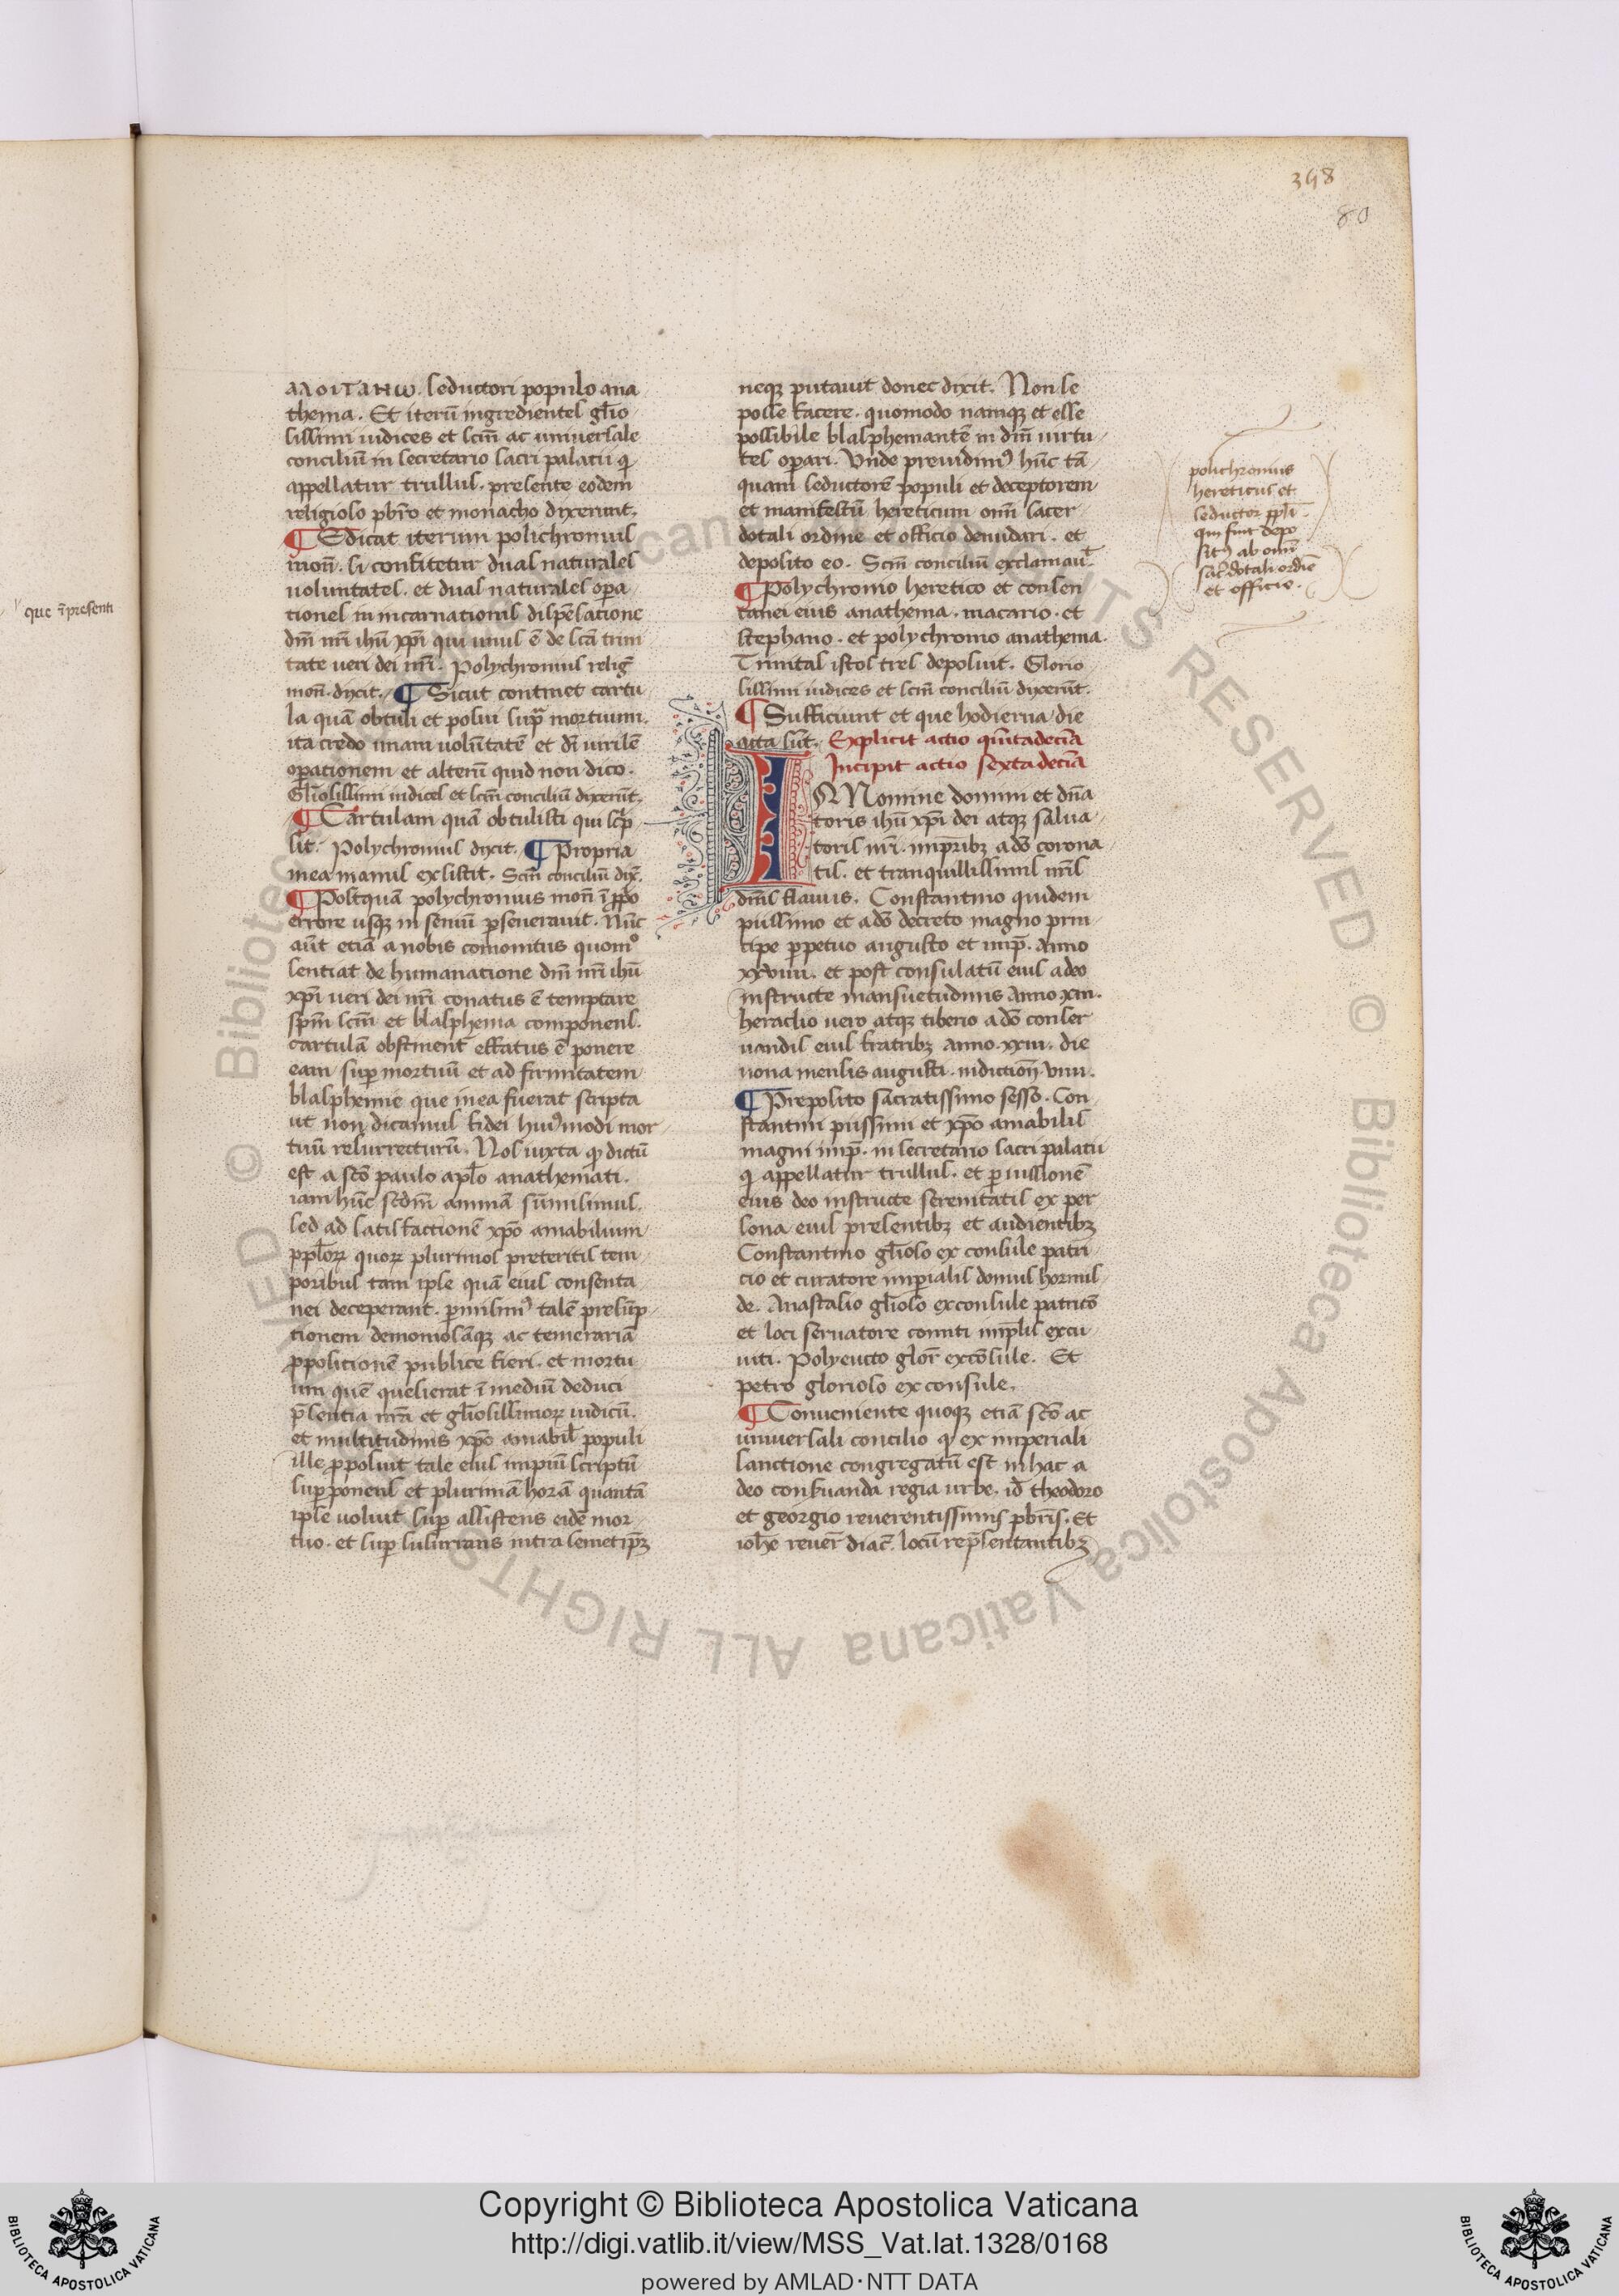 398
80
ΑΛΟΙΤΑΝΩ. seductori populo ana
thema. Et iterū ingredientes gl̄io
sissimi iudices et sc̄m ac uniuersale
conciliū in secretario sacri palatii qđ
appellatur trullus. presente eodem
religioso pbr̄o et monacho dixerunt.
¶ Edicat iterum polichromius
mon̄. si confitetur duas naturales
uoluntates. et duas naturales opa
tiones in incarnationis dispēsatione
dn̄i nr̄i ihū xp̄i qui unus ē de sc̄a trini
tate ueri dei nr̄i. Polychromius reliḡ
mon̄. dixit. ¶ Sicut continet cartu
la quā obtuli et posui supra mortuum.
ita credo unam uolūtatē et di uirilē
opationem et alterū quid non dico.
Gl̄iosissimi iudices et sc̄m conciliū dixerūt.
¶ Cartulam quā obtulisti qui scrip
sit. Polychromius dixit. ¶ Propria
mea manus exsistit. Scm̄ conciliū dix̄.
¶ Postquā polychromius mon̄ ī ꝓpo
errore usqꝫ in senium pseuerauit. Nūc
aūt etiā a nobis comonitus quomo
sentiat de humanatione dn̄i nr̄i ihū
xp̄i ueri dei nr̄i conatus ē temptare
sp̄m sc̄m et blasphema componens.
cartulā obstinent effatus ē ponere
eam sup mortuū et ad firmitatem
blasphemie que mea fuerat scripta
ut non dicamus fidei huiꝰmodi mor
tuū resurrecturū. Nos iuxta qđ dictū
est a sc̄o paulo apl̄o anathemati.
iam hūc scd̄m animā sūmisimus.
sed ad satisfactionē xp̄o amabilium
ppl̄oꝝ quoꝝ plurimos preteritis tem
poribus tam ipse quā eius consenta
nei deceperant. pmisimꝰ talē presūp
tionem demoniosāqꝫ ac temerariā
ꝓpositionē publice fieri. et mortu
um quē quesierat ī mediū deduci
p̄sentia nr̄a et gl̄iosissimoꝝ iudicū.
et multitudinis xp̄o amabil̄ populi
ille ꝓposuit tale eius impiū scriptū
supponens et plurimā horā quantā
ipse uoluit sup assistens eidē mor
tuo. et sup susurrans intra semetip̄ꝫ
neqꝫ putauit donec dixit. Non se
posse facere. quomodo namqꝫ et esse
possibile blasphemantē in dn̄m uirtu
tes opari. Unde preuidimꝰ hūc tā
quam seductorē populi et deceptorem
et manifestū hereticum omī sacer
dotali ordine et officio denudari. et
deposito eo. Scm̄ conciliū exclamauit.
¶ Polychromo heretico et consen
tanei eius anathema. macario. et
stephano. et polychromo anathema.
Trinitas istos tres deposuit. Glorio
sissimi iudices et sc̄m conciliū dixerūt.
¶ Sufficiunt et que hodierna die
acta sūt. Explicit actio quītadecīa
Incipit actio sextadecīa
IN Nomine domini et dn̄a
toris ihū xp̄i dei atqꝫ salua
toris nr̄i. imp̄ribꝫ a dō corona
tis. et tranquillissimis nr̄is
dn̄is flauiis. Constantino quidem
piissimo et a dō decreto magno prin
cipe ppetuo augusto et imp̄. Anno
xxviiii. et post consulatū eius a deo
instructe mansuetudinis Anno xiii.
heraclio uero atqꝫ tiberio a dō conser
uandis eius fratribꝫ Anno. xxiii. die
nona mensis augusti. indiction̄ viiii.
¶ Preposito sacratissimo sesso. Con
stantini piissimi et xp̄o amabilis
magni imp̄. in secretario sacri palatii
qđ appellatur trullus. et p iussionē
eius deo instructe serenitatis ex per
sona eius presentibꝫ et audientibꝫ
Constantino gl̄ioso ex consule patri
cio et curatore impialis domus hormis
de. Anastasio gl̄ioso exconsule patricō
et loci seruatore comiti imp̄lis excu
uiti. Polyeucto glor̄ excōsule. Et
petro glorioso ex consule.
¶ Conueniente quoqꝫ etiā sc̄o ac
uniuersali concilio qđ ex imperiali
sanctione congregatū est in hac a
deo conseruanda regia urbe. id̄ theodoro
et georgio reuerentissimis pbr̄is. Et
ioh̄e reuer̄ diac̄. locū rep̄sentantibꝫ
polichromius
hereticus et
seductor ppl̄i
qui fuit depo
sitꝰ ab omī
sac̄dotali ordīe
et officio.
que ī presenti
Copyright © Biblioteca Apostolica Vaticana
http://digi.vatlib.it/view/MSS_Vat.lat.1328/0168
powered by AMLAD·NTT DATA
BIBLIOTECA APOSTOLICA VATICANA
BIBLIOTECA APOSTOLICA VATICANA
© Biblioteca Apostolica Vaticana ALL RIGHTS RESERVED